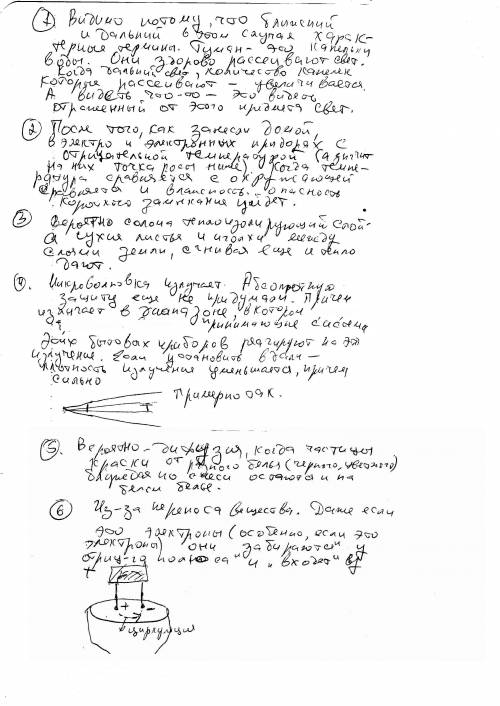 ① Видимо потому, что ближний
и дальний в этом случае харак-
терные термины. Туман - это капельки
воды. Они здорово рассеивают свет.
Когда дальний свет, количество капелек
которые рассеивают - увеличивается.
А видеть что-то - это видеть
отраженный от этого предмета свет.
② После того, как занесли домой,
в электро и электронных приборах с
отрицательной температурой (а значит
на них точка росы ниже). Когда темпе-
ратура сравняется с окружающей
сравняется и влажность. Опасность
короткого замыкания уйдет.
③ Вероятно солома теплоизолирующий слой-
а сухие листья и иголки между
слоями земли, сгнивая еще и тепло
дают.
4. Микроволновка излучает. Абсолютную
защиту еще не придумали. Причем
излучает в диапазоне, в котором
принимающие системы
этих бытовых приборов реагируют на это
излучение. Если установить вдали -
плотность излучения уменьшается, причем
сильно
Примерно так.
5. Вероятно - диффузия, когда частицы
краски от белья (черного, цветного)
блуждая по смеси остаются и на
белом белье.
⑥ Из-за переноса вещества. Даже если
это электроны (особенно, если это
электроны) они "забираются" у
полюса и "входят" в
+
+ -
циркуляция